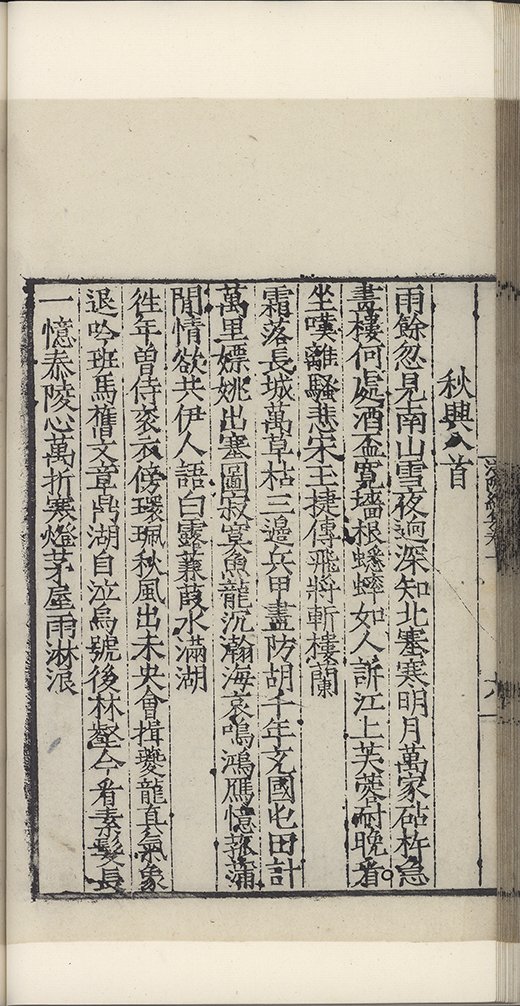 秋興八首
雨餘忽見南山雪夜逈深知北塞寒明月萬家砧杵急
畫樓何處酒盃寬墻根蟋蟀如人訴江上芙蓉耐晚看
坐嘆離騷悲宋玉捷傳飛將斬樓蘭
霜落長城萬草枯三邊兵甲盡防胡千年充國屯田計
萬里嫖姚出塞圖寂寞魚龍沉瀚海哀鳴鴻鴈憶菰蒲
閒情欲共伊人語白露蒹葭水滿湖
徃年曽侍袞衣傍環珮秋風出未央會揖夔龍真氣象
退吟班馬舊文章鼎湖自泣烏號後林壑今看素髮長
一憶泰陵心萬折寒燈茅屋雨淋浪
八